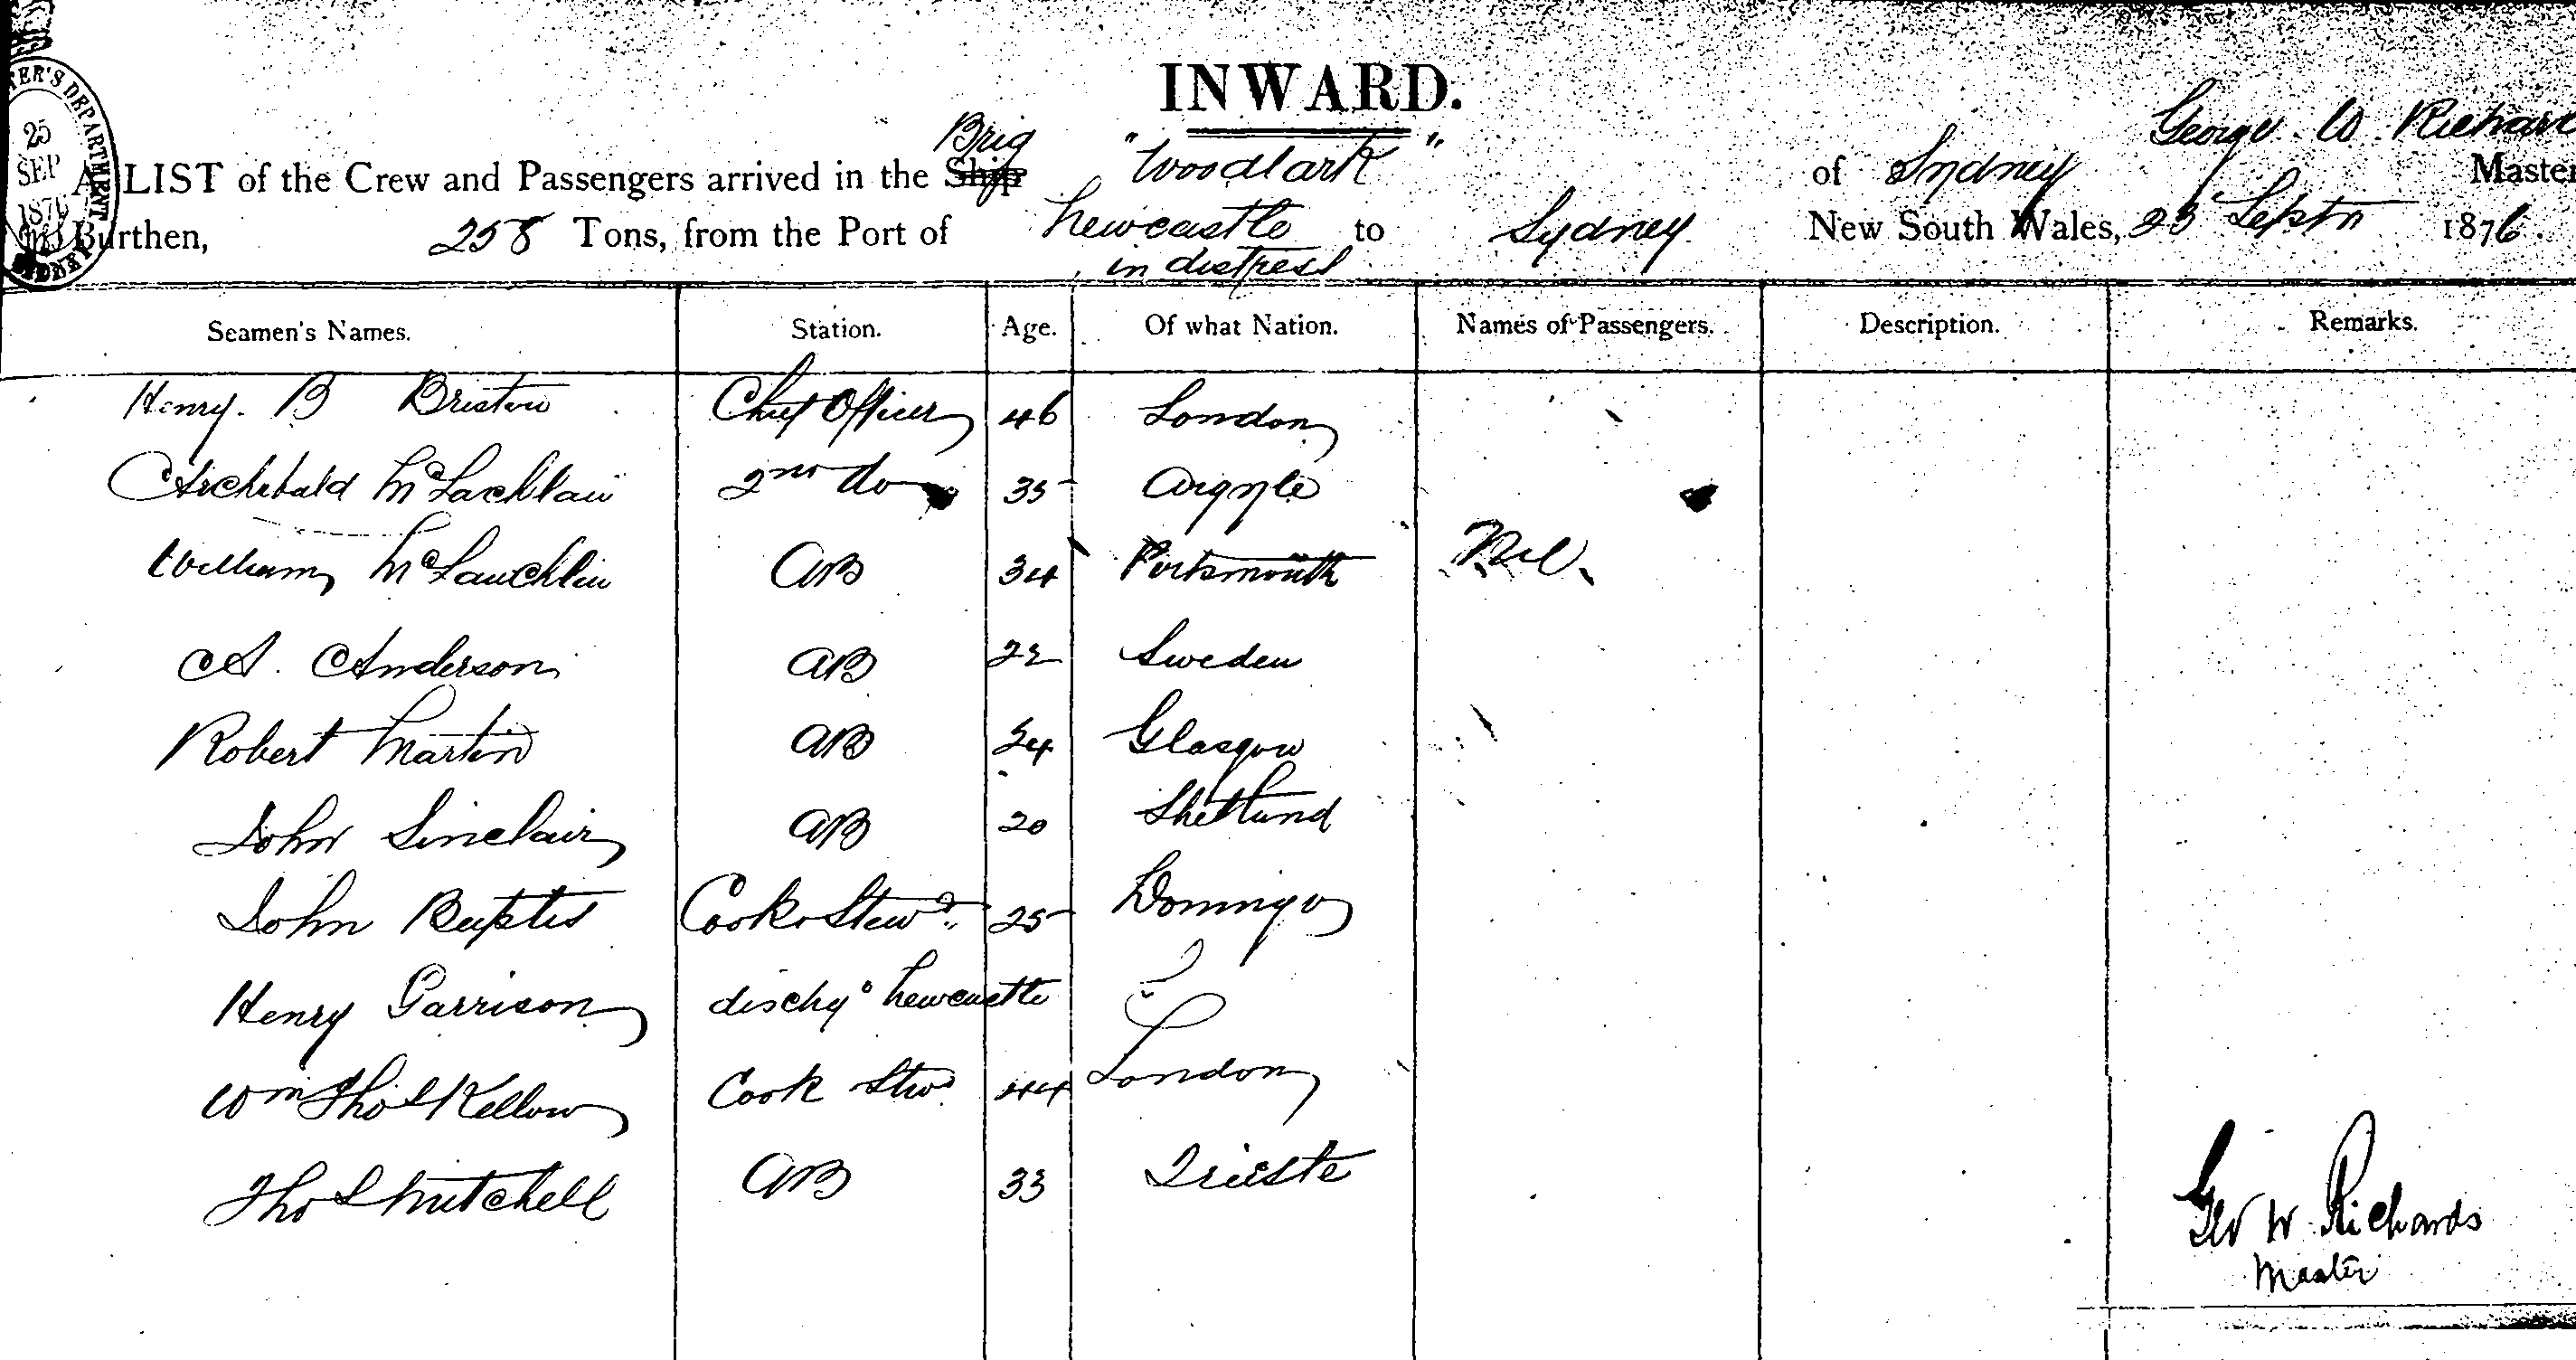 INWARD.
TER'S DEPARTMENT
25
SEP
1876
SYDNEY
George W Richard
A LIST of the Crew and Passengers arrived in the Ship Brig "Woodlark" of Sydney Master
Burthen, 258 Tons, from the Port of Newcastle to Sydney New South Wales, 25 Septr 1876.
in distress
Seamen's Names. Station. Age. Of what Nation. Names of Passengers. Description. Remarks.
Henry. B Bristow Chief Officer 46 London
Archibald McLachlan 2nd do 35 Argyle
William McLauchlin AB 34 Portsmouth Nil.
A. Anderson AB 22 Sweden
Robert Martin AB 24 Glasgow
John Sinclair AB 20 Shetland
John Baptis Cook & Stewd 25 Domingo
Henry Garrison dischgd Newcastle
Wm Thos Kellow Cook Stwd 44 London
Thos Mitchell AB 33 Trieste
Geo W Richards
Master